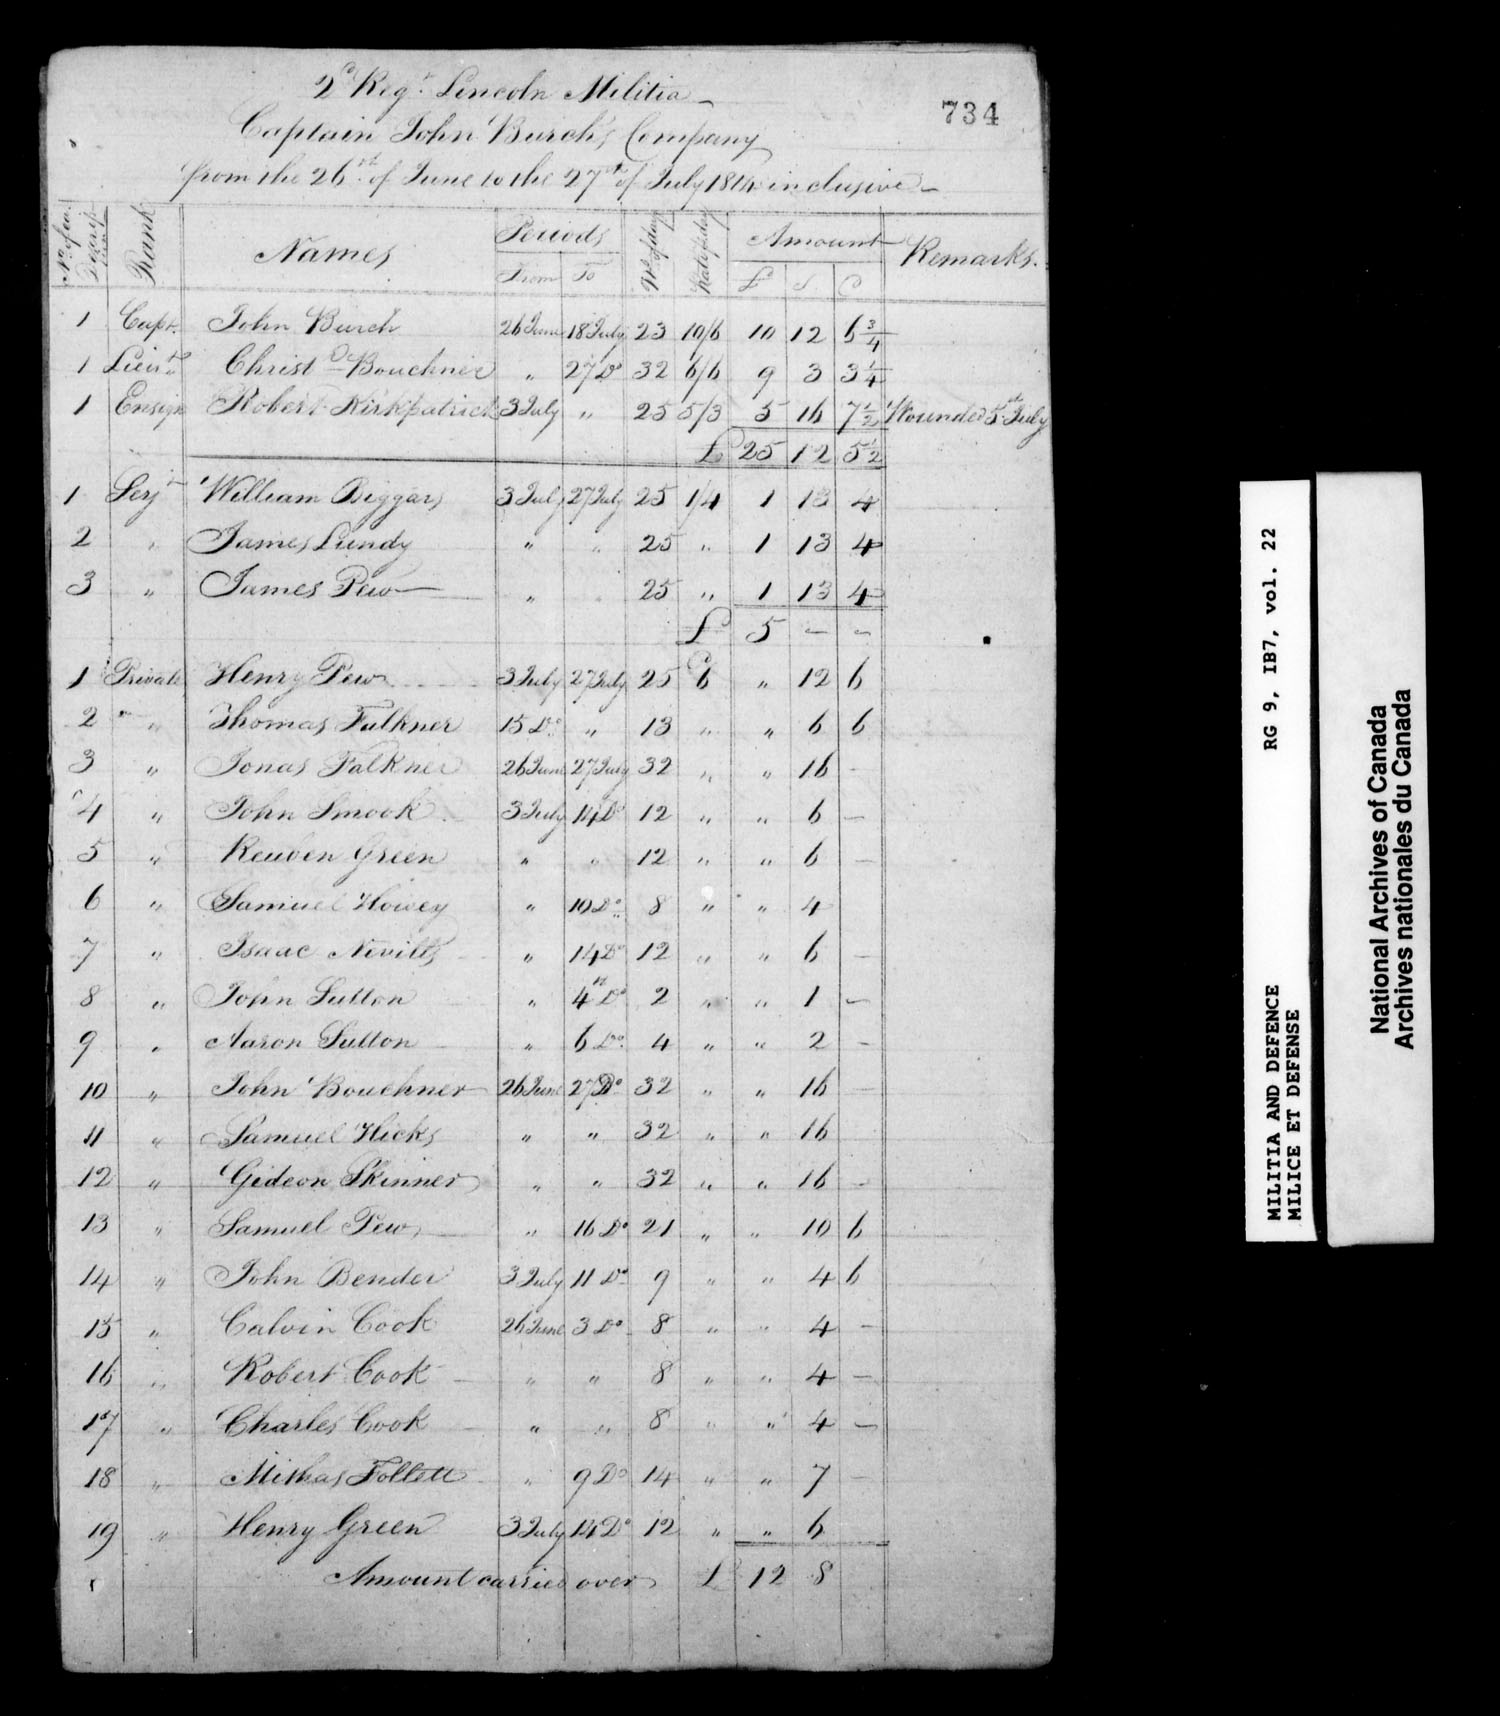 734
2d Regt Lincoln Militia
Captain John Burch's Company
from the 26th of June to the 27th of July 1814 inclusive
No of Rank Names Periods No of days Rate p day Amount Remarks.
From To £ S. D
1 Capt. John Burch 26 June 18 July 23 10/6 10 12 6 3/4
1 Lieut. Christr Bouchner " 27 Do 32 6/6 9 3 3 1/4
1 Ensign Robert Kirkpatrick 3 July " 25 5/3 5 16 7 1/2 Wounded 5th July
£ 25 12 5 1/2
1 Serjt William Biggars 3 July 27 July 25 1/4 1 13 4
2 " James Lundy " " 25 " 1 13 4
3 " James Pew " 25 " 1 13 4
£ 5 - -
1 Private Henry Pew 3 July 27 July 25 6 " 12 6
2 " Thomas Falkner 15 Do " 13 " " 6 6
3 " Jonas Falkner 26 June 27 July 32 " " 16 -
4 " John Smook 3 July 14 Do 12 " " 6 -
5 " Reuben Green " " 12 " " 6 -
6 " Samuel Howey " 10 Do 8 " " 4
7 " Isaac Nevills " 14 Do 12 " " 6 -
8 " John Sutton " 4th Do 2 " " 1 -
9 " Aaron Sutton " 6 Do 4 " " 2 -
10 " John Bouchner 26 June 27 Do 32 " " 16 -
11 " Samuel Hicks " " 32 " " 16
12 " Gideon Skinner " " 32 " " 16 -
13 " Samuel Pew " 16 Do 21 " " 10 6
14 " John Bender 3 July 11 Do 9 " " 4 6
15 " Calvin Cook 26 June 3 Do 8 " " 4 -
16 " Robert Cook " " 8 " " 4 -
17 " Charles Cook " " 8 " " 4 -
18 " Follett " 9 Do 14 " " 7 -
19 " Henry Green 3 July 14 Do 12 " " 6
Amount carried over £ 12 8
RG 9, IB7, vol. 22
MILITIA AND DEFENCE
MILICE ET DEFENSE
National Archives of Canada
Archives nationales du Canada